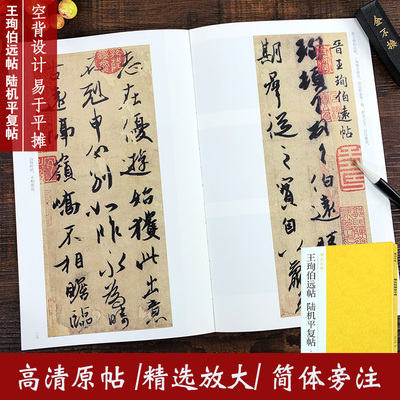 空背设计 易于平摊
王珣伯远帖 陆机平复帖
金不换
晋王珣伯遠帖
珣頓首頓首伯遠勝
期群從之寶自以羸
志在優遊始獲此出意
不剋申分別如昨永為疇
古遠隔嶺嶠不相瞻臨
王珣伯远帖 陆机平复帖
高清原帖 /精选放大/ 简体旁注